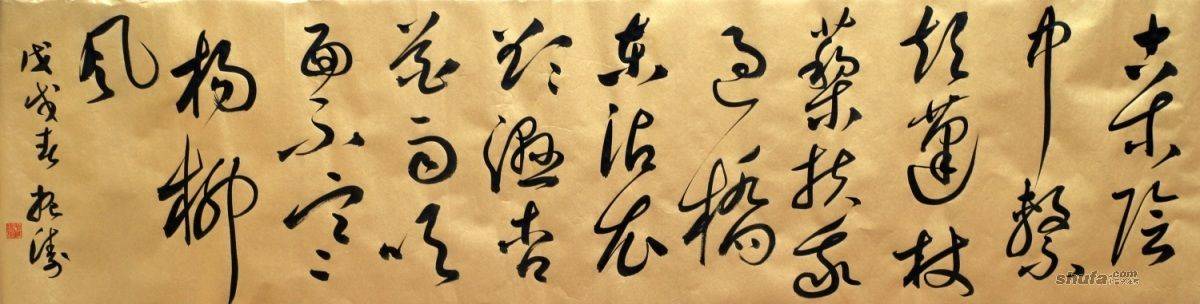 古木陰
中繫
短蓬杖
藜扶我
過橋
東沾衣
欲濕杏
花雨吹
面不寒
楊柳
風
戊戌春
shufa.com